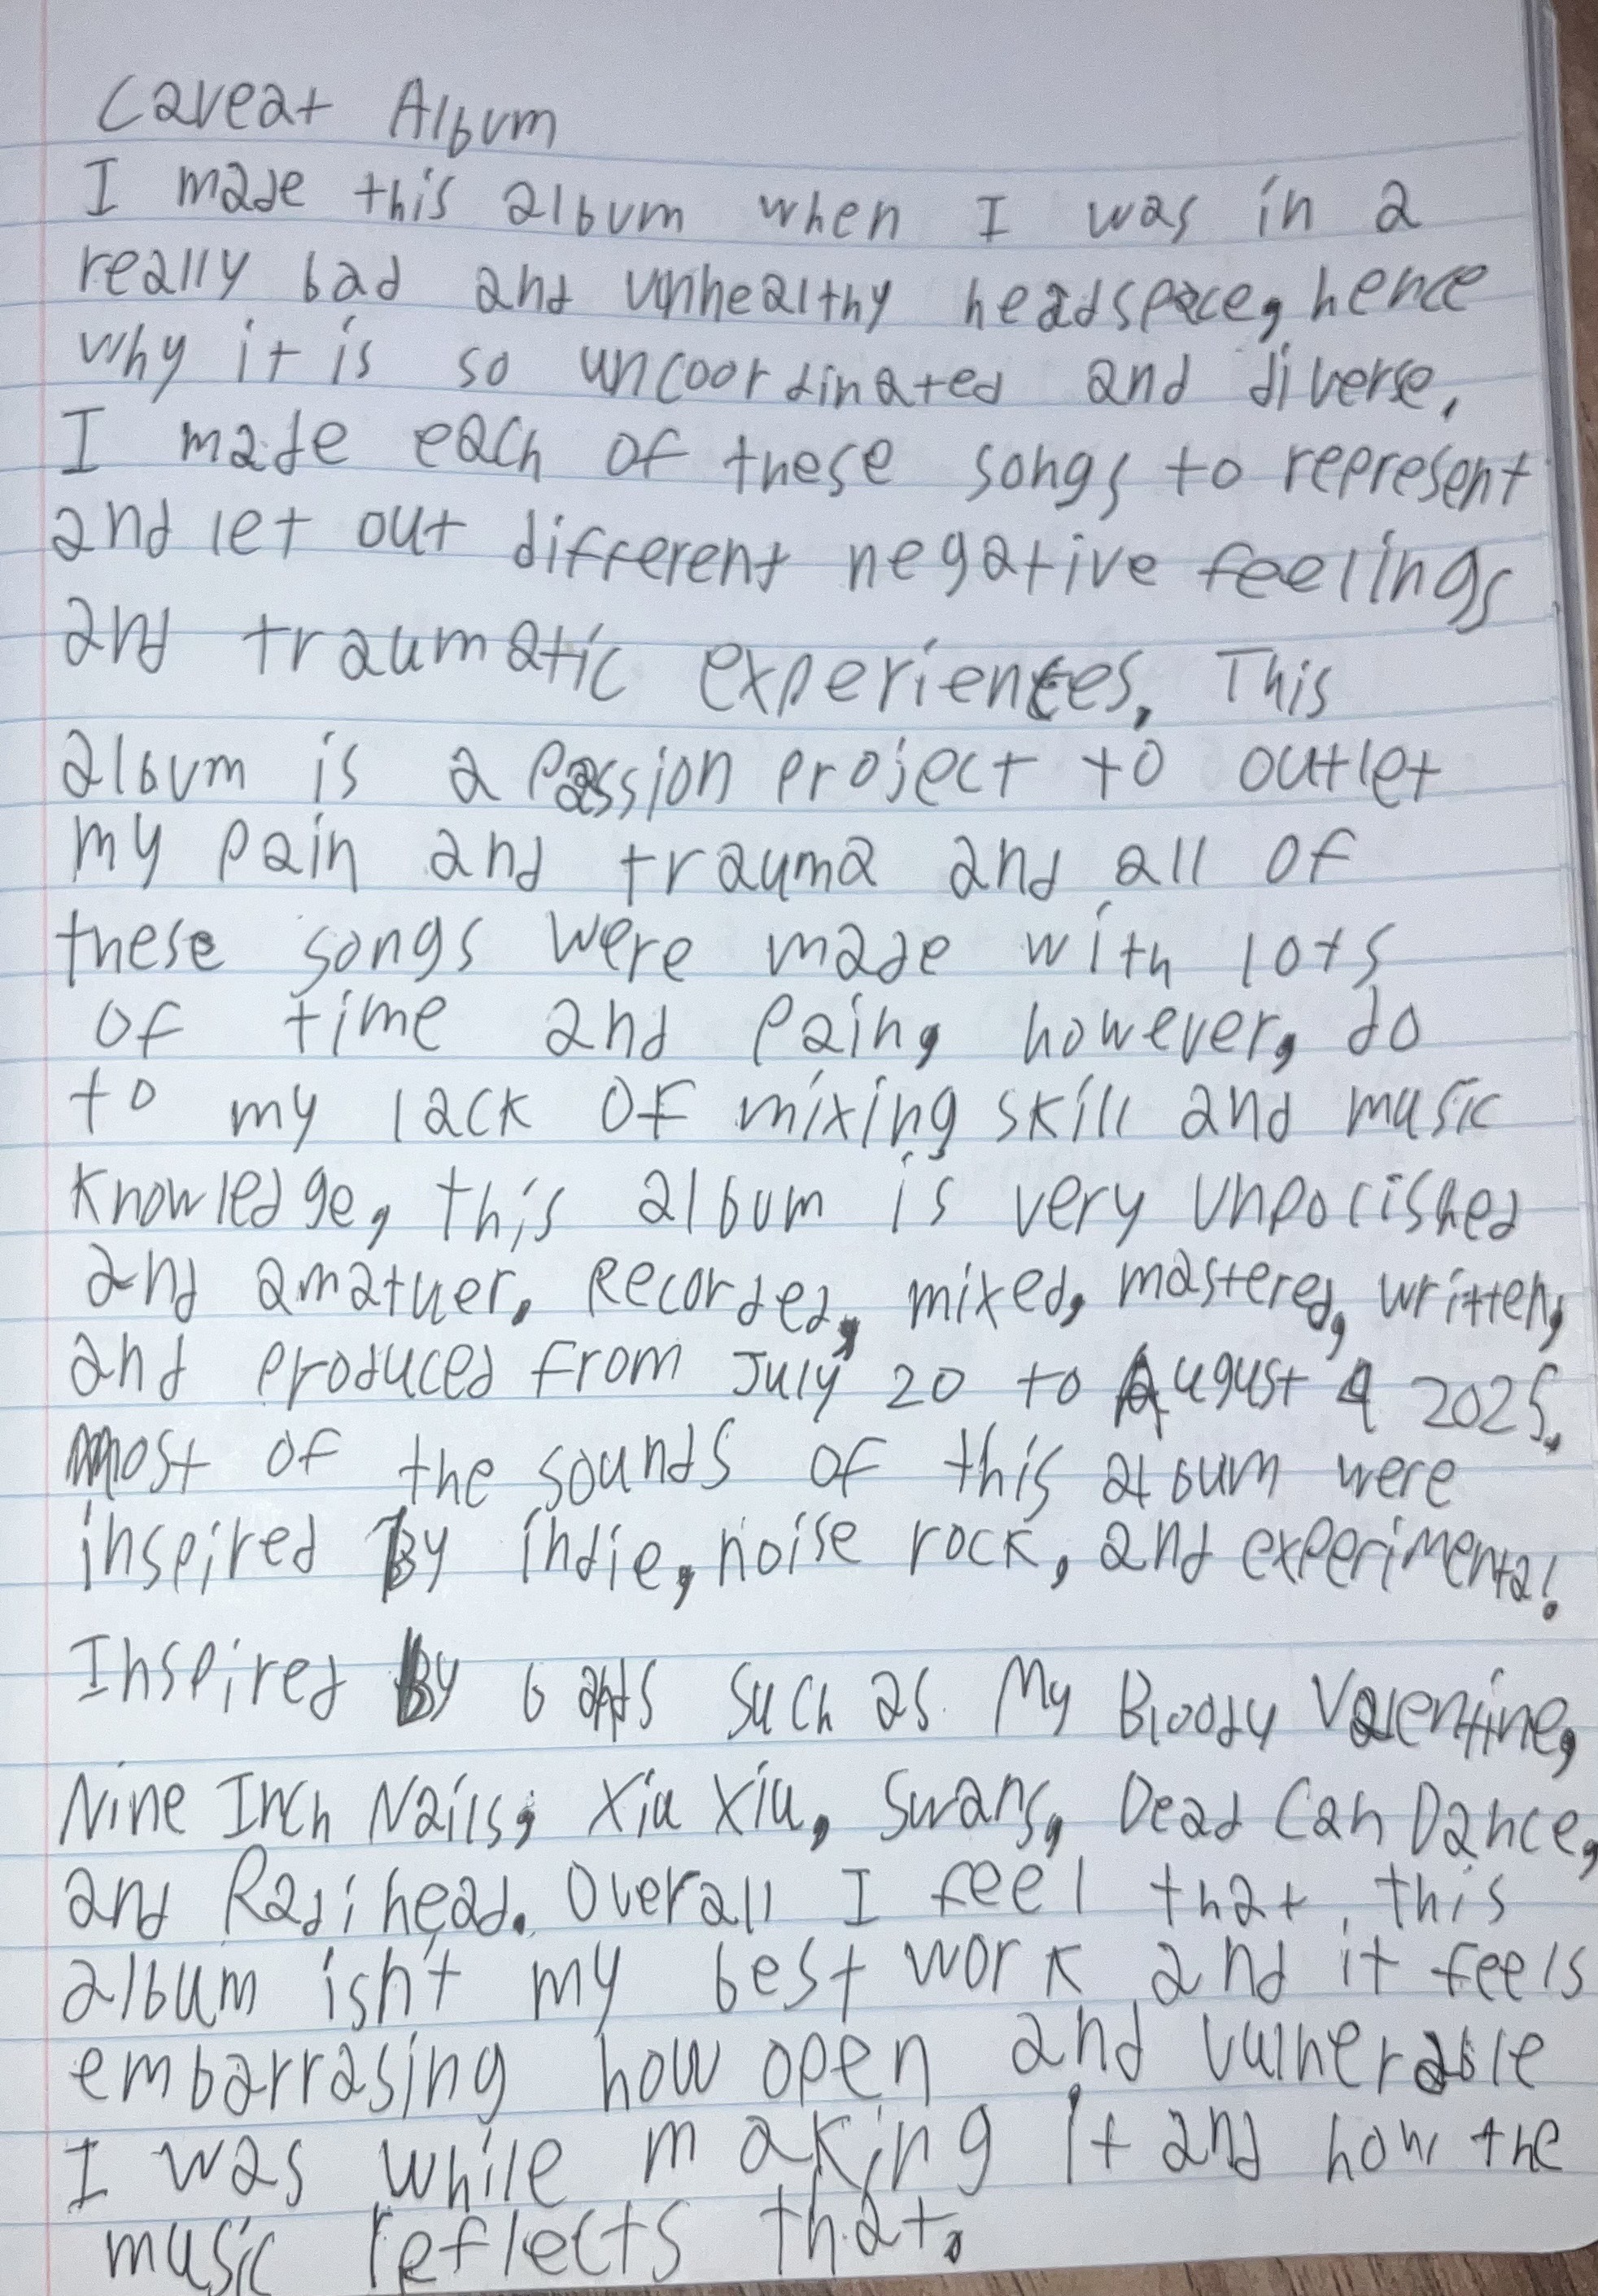 Caveat Album
I made this album when I was in a
really bad and unhealthy headspace, hence
why it is so uncoordinated and diverse.
I made each of these songs to represent
and let out different negative feelings
and traumatic experiences. This
album is a passion project to outlet
my pain and trauma and all of
these songs were made with lots
of time and pain, however, do
to my lack of mixing skill and music
knowledge, this album is very unpolished
and amatuer. Recorded, mixed, mastered, written,
and produced from July 20 to August 4 2025.
most of the sounds of this album were
inspired By indie, noise rock, and experimental.
Inspired By bands such as My Bloody Valentine,
Nine Inch Nails, Xiu Xiu, Swans, Dead Can Dance,
and Radihead. Overall I feel that this
album isn't my best work and it feels
embarrasing how open and vulnerable
I was while making it and how the
music reflects that.